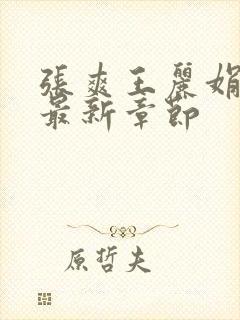 張爽王麗娟
最新章節
原哲夫